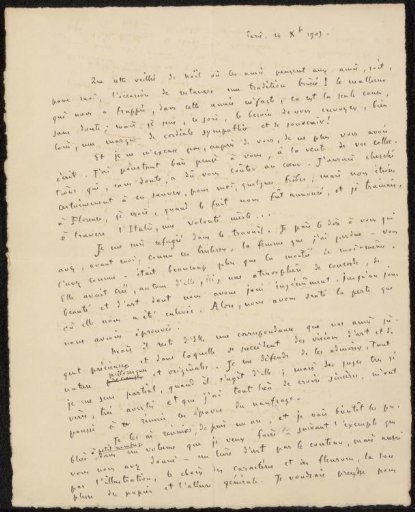 Paris, 24 Xbre 1909.
Que cette veillée de Noël où les amis pensent aux amis, soit,
pour moi, l'occasion de restaurer une tradition brisée ! Le malheur
qui nous a frappés, dans cette année néfaste, en est la seule cause,
sans doute ; mais je sens, ce soir, le besoin de vous envoyer, bien
loin, une marque de cordiale sympathie et de souvenir !
Et je ne m'excuse pas, auprès de vous, de ne plus vous avoir
écrit. J'ai pourtant bien pensé à vous, à la vente de vos collec-
tions qui, sans doute, a dû vous coûter au cœur. J'aurais cherché
certainement à en sauver, pour moi, quelques bribes, mais nous étions
à Florence, je crois, quand le fait nous fut annoncé, et je traînais,
à travers l'Italie, une volonté
Je me suis réfugié dans le travail. Je puis le dire à vous qui
avez, avant moi, connu ces la femme que j'ai perdue - vous
l'avez connue - était beaucoup plus que la moitié de moi-même.
Elle avait créé, autour d'elle, une atmosphère de concorde, de
beauté et d'art dont nous avons joui ingénument, jusqu'au jour
où elle nous a été enlevée. Alors, nous avons senti la perte que
nous avions éprouvée.
Mais il reste d'Elle une correspondance que nos amis ju-
gent précieuse et dans laquelle se succèdent des visions d'art et de
nature pittoresques et originales. Je me défends de les admirer, tant
je me sens partial, quand il s'agit d'elle ; mais des juges très sé-
vères, très avertis et que j'ai tout lieu de croire sincères, m'ont
poussé à réunir les épaves du naufrage.
Je les ai réunies, depuis un an, et je vais bientôt les pu-
blier à petit nombre dans un volume que je veux faire - suivant l'exemple que
vous nous avez donné - un livre d'art par le contenu, mais aussi
par l'illustration, le choix des caractères et des fleurons, la sou-
plesse du papier et l'allure générale. Je voudrais prendre pour